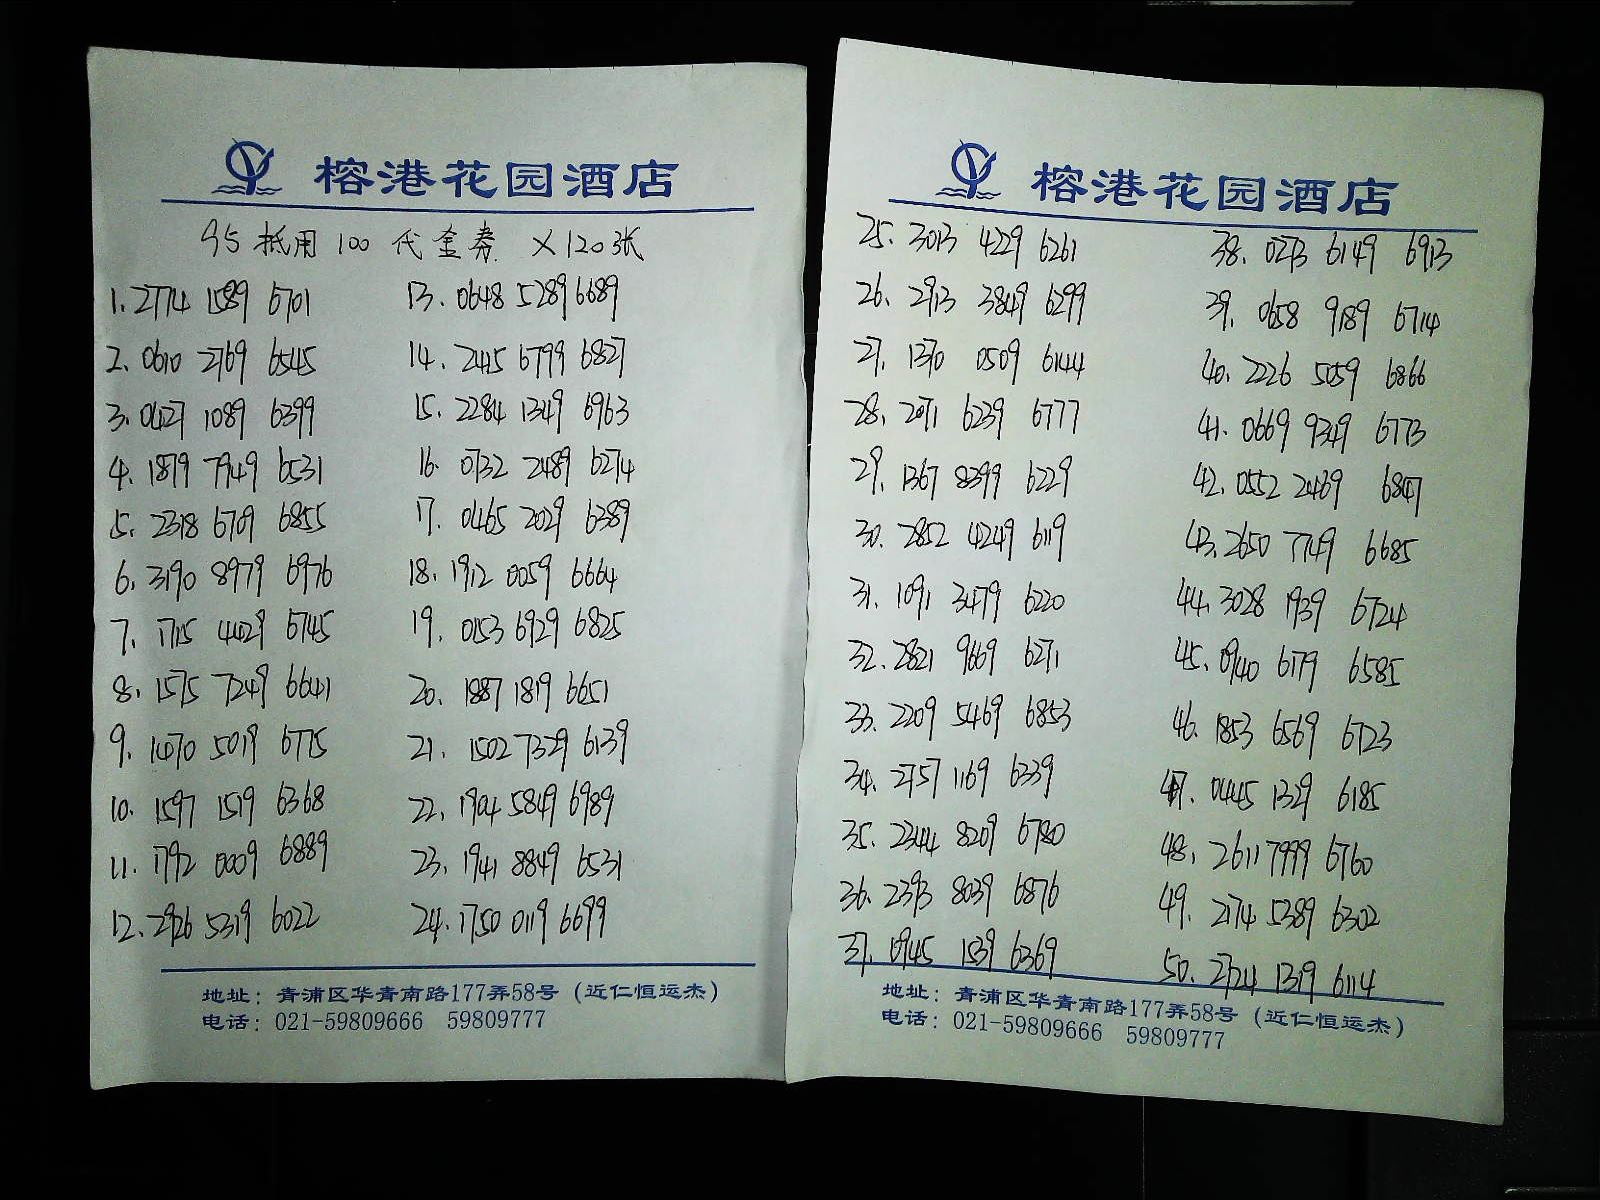 榕港花园酒店
95抵用100代金券 ×120张
1. 2774 1589 6701
2. 0610 2769 6545
3. 0427 1089 6399
4. 1879 7949 6531
5. 2318 6709 6855
6. 3190 8979 6976
7. 1715 4429 6745
8. 1575 7249 6641
9. 1470 5019 6775
10. 1597 1519 6368
11. 1792 0009 6889
12. 2926 5319 6022
13. 0648 5289 6689
14. 2415 6799 6827
15. 2284 1349 6963
16. 0732 2489 6274
17. 0465 2029 6389
18. 1912 0059 6664
19. 0153 6929 6825
20. 1887 1819 6651
21. 1502 7329 6139
22. 1904 5849 6989
23. 1941 8849 6531
24. 1750 0119 6699
地址：青浦区华青南路177弄58号（近仁恒运杰）
电话：021-59809666 59809777
榕港花园酒店
25. 3013 4229 6261
26. 2913 3849 6299
27. 1370 0509 6144
28. 2071 6239 6777
29. 1367 8399 6229
30. 2852 4249 6119
31. 1091 3479 6220
32. 2821 9669 6271
33. 2209 5469 6853
34. 2757 1169 6339
35. 2344 8209 6780
36. 2393 8039 6876
37. 0945 1539 6369
38. 0273 6149 6913
39. 0658 9189 6714
40. 2226 5059 6866
41. 0669 9349 6773
42. 0552 2469 6847
43. 2650 7749 6685
44. 3028 1939 6724
45. 0940 6179 6585
46. 1853 6569 6723
47. 0445 1329 6185
48. 2611 7999 6760
49. 2174 5389 6302
50. 2724 1319 6114
地址：青浦区华青南路177弄58号（近仁恒运杰）
电话：021-59809666 59809777